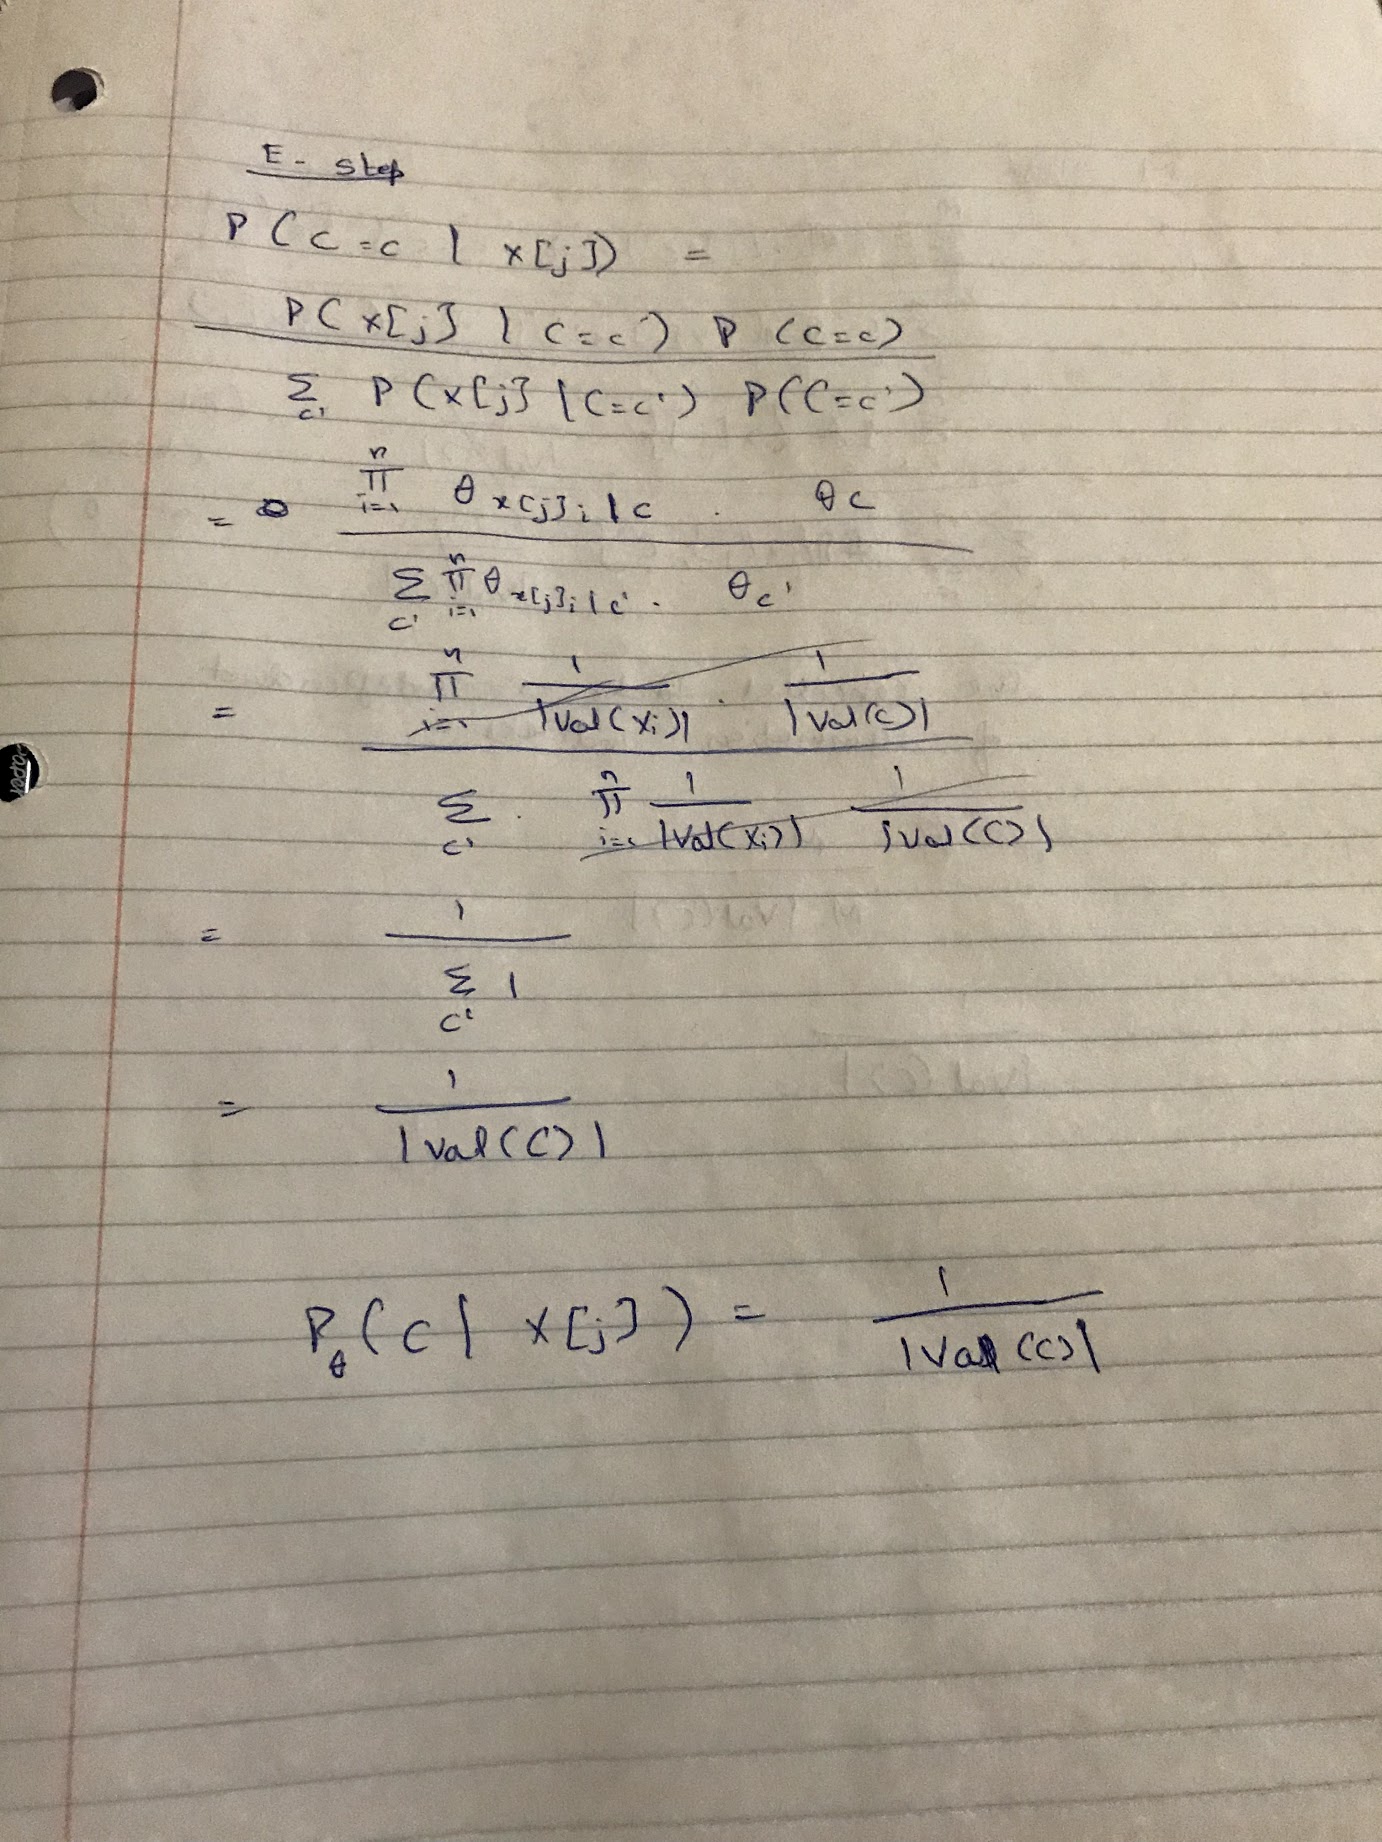 E - step
P ( C = c | x[j]) =
P( x[j] | C = c ) P (C = c)
Σ c' P (x[j] | C = c') P(C = c')
= n Π i=1 θ x[j]i | c . θ c
Σ c' n Π i=1 θ x[j]i | c' . θ c'
= n Π i=1 1 / |Val(Xi)| . 1 / |Val(C)|
Σ c' . n Π i=1 1 / |Val(Xi)| 1 / |Val(C)|
= 1
Σ c' 1
= 1
|Val(C)|
Pθ ( c | x[j] ) = 1 / |Val(C)|